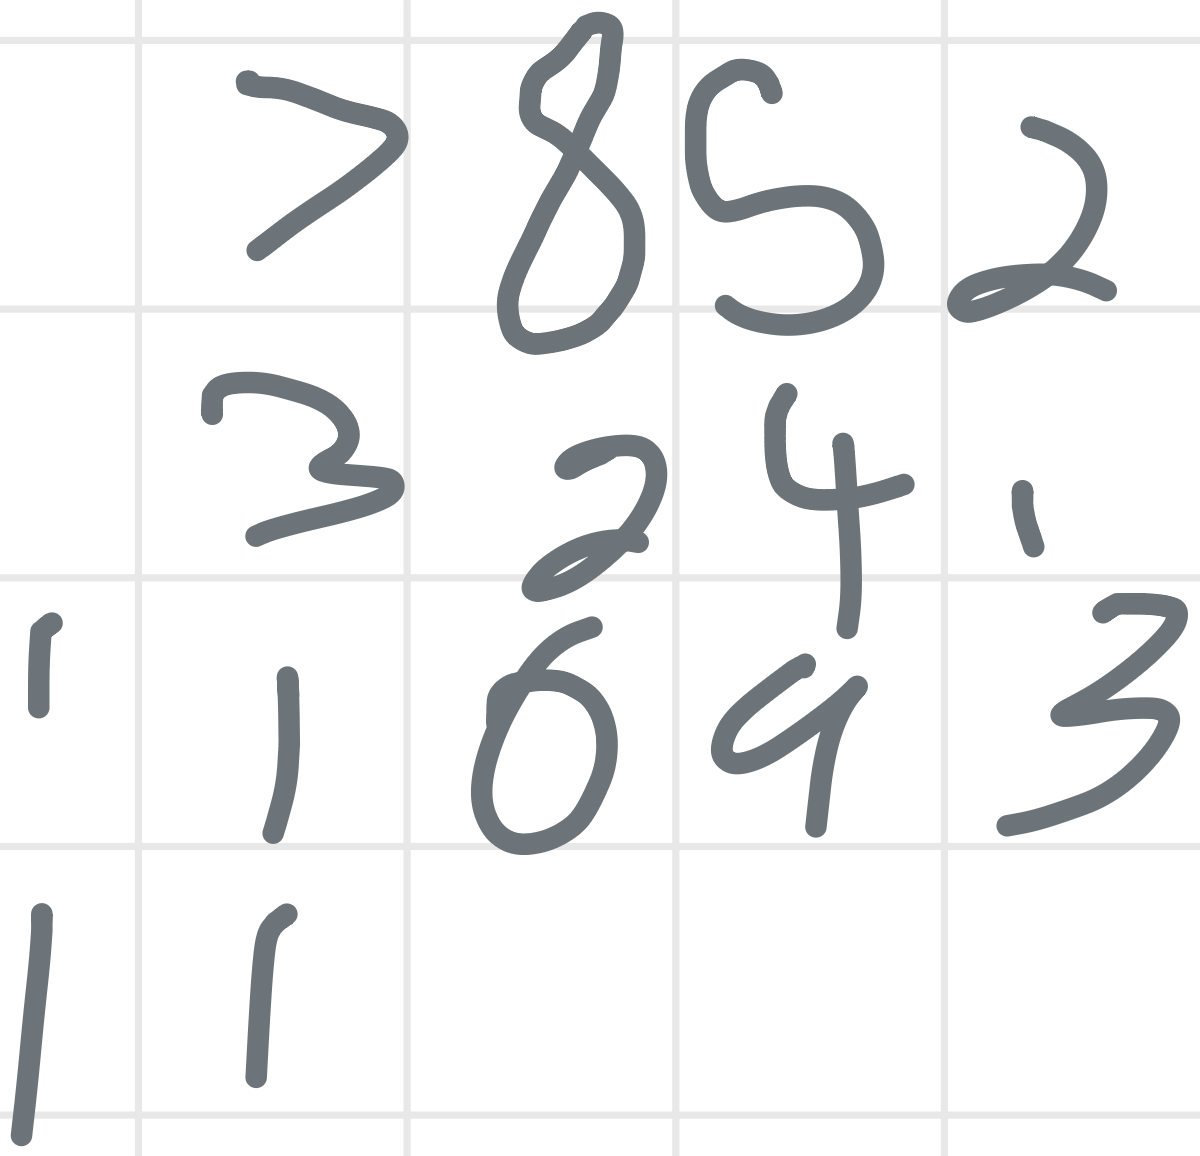 7852
3241
11093
11